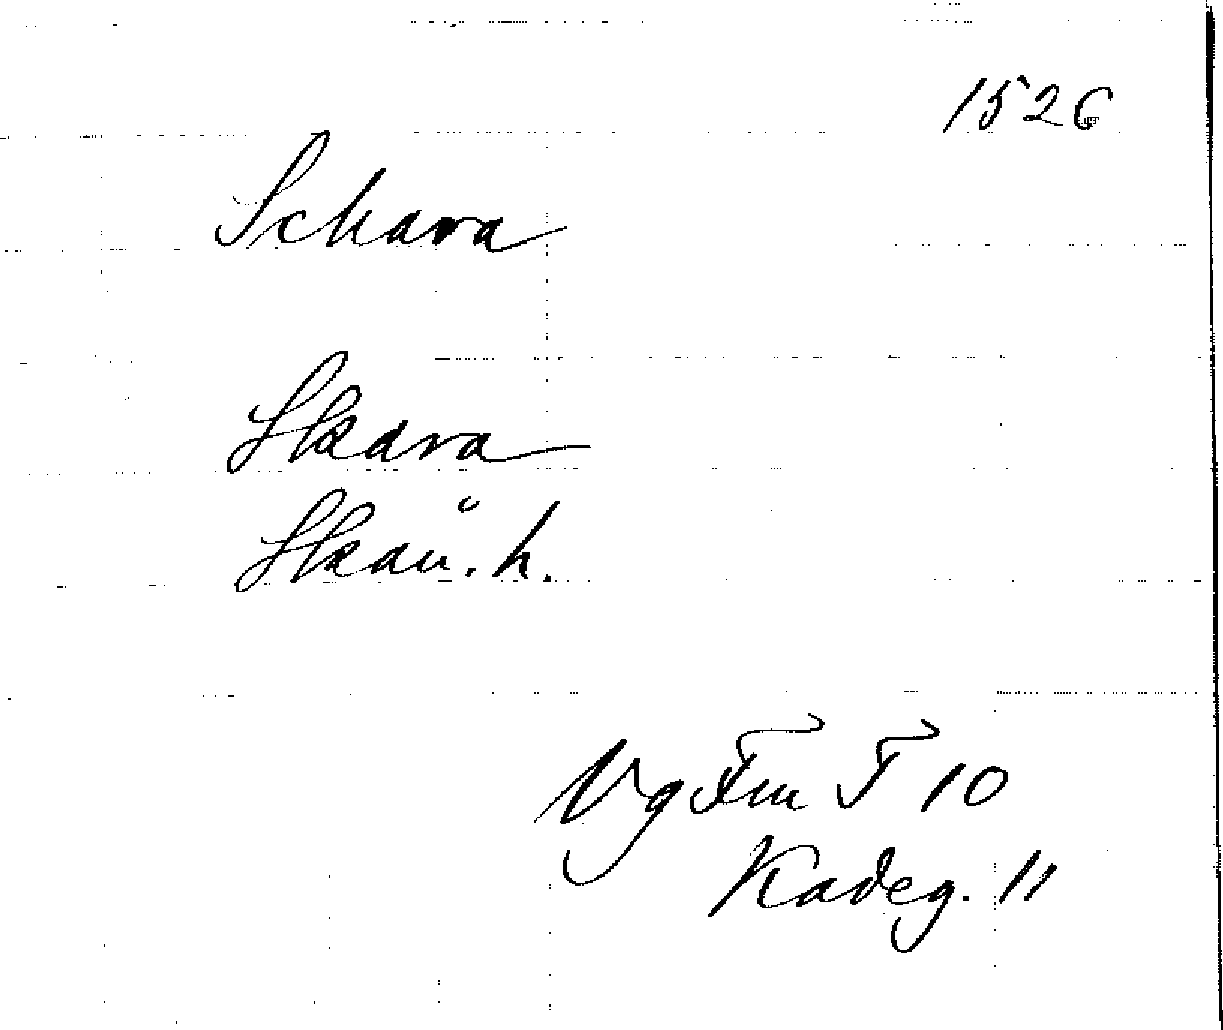 1526
Schara
Skara
Skån. h.
Vg Fm T 10
Kadeg. 11